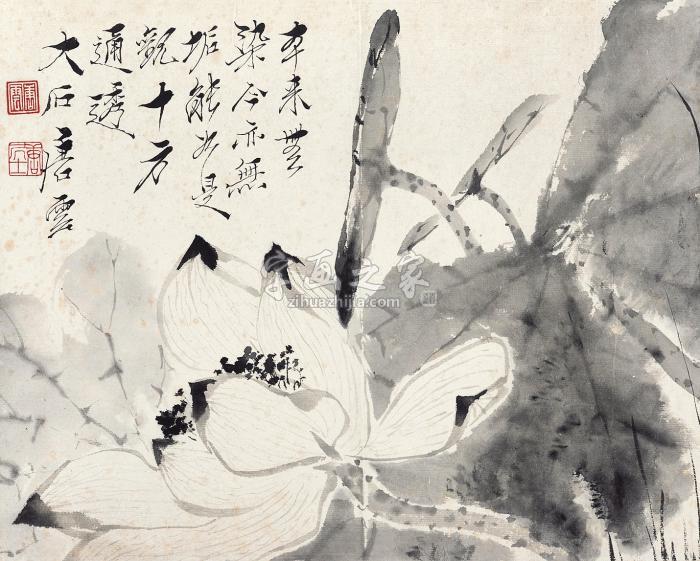 本来無
染今亦無
垢能如是
觀十方
通透
大石唐雲
字画之家
zihuazhijia.com